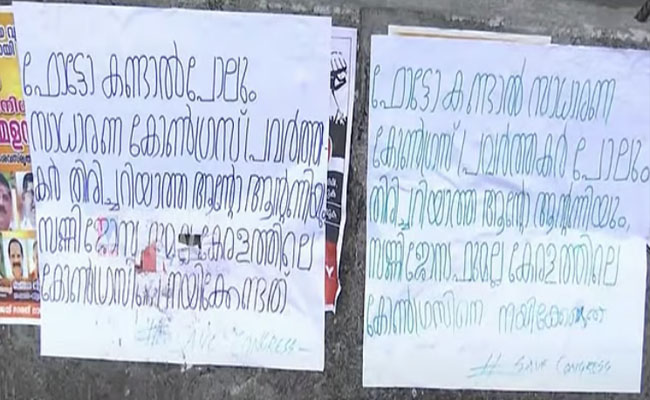 ഫോട്ടോ കണ്ടാൽപോലും
സാധാരണ കോൺഗ്രസ് പ്രവർത്ത-
കർ തിരിച്ചറിയാത്ത ആന്റോ ആന്റണിയും
സണ്ണി ജോസഫുമല്ല കേരളത്തിലെ
കോൺഗ്രസിനെ നയിക്കേണ്ടത്
# SAVE CONGRESS
ഫോട്ടോ കണ്ടാൽ സാധാരണ
കോൺഗ്രസ് പ്രവർത്തകർ പോലും
തിരിച്ചറിയാത്ത ആന്റോ ആന്റണിയും,
സണ്ണി ജോസഫുമല്ല കേരളത്തിലെ
കോൺഗ്രസിനെ നയിക്കേണ്ടത്
# SAVE CONGRESS